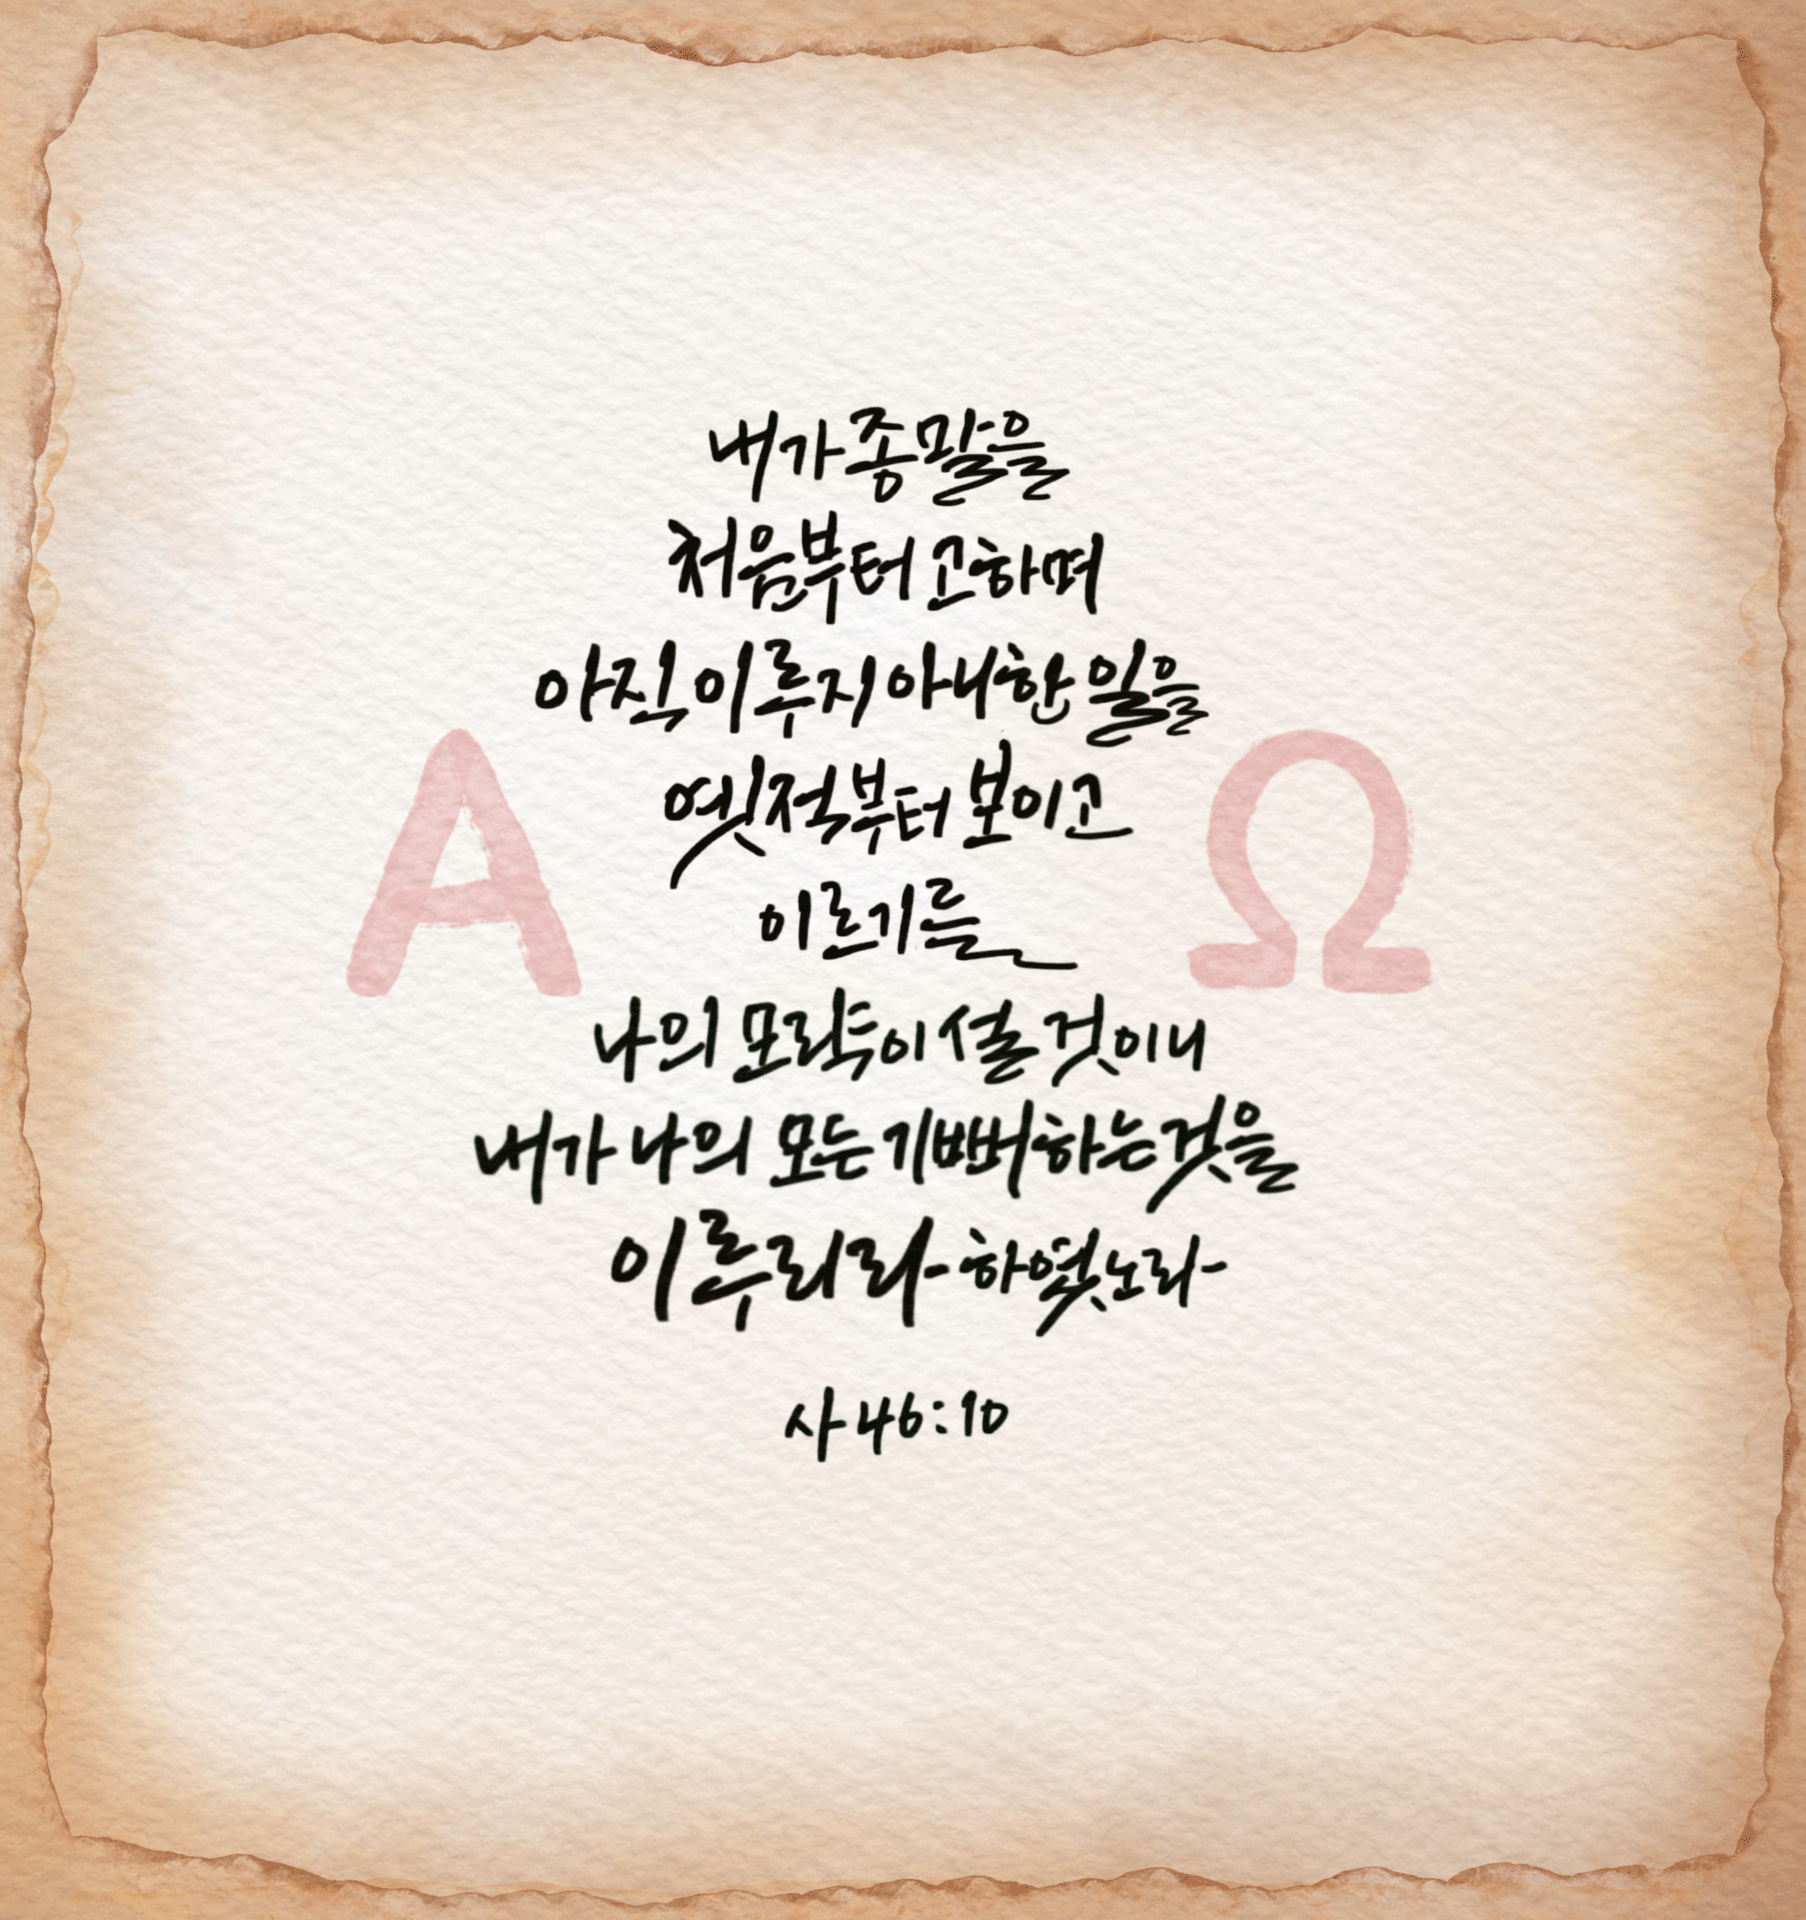 내가 종말을
처음부터 고하며
아직 이루지 아니한 일을
옛적부터 보이고
이르기를
나의 모략이 설 것이니
내가 나의 모든 기뻐하는 것을
이루리라 하였노라
사 46:10
Α Ω